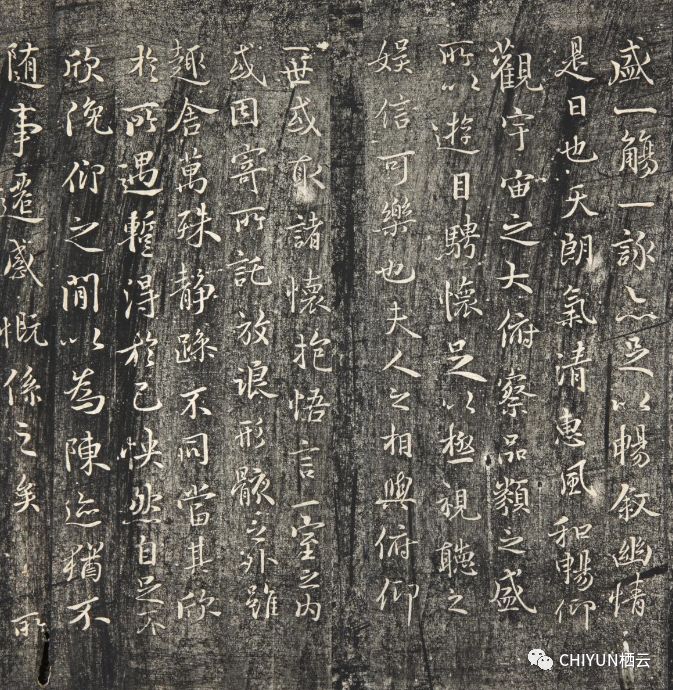 盛一觴一詠亦足以暢敘幽情
是日也天朗氣清惠風和暢仰
觀宇宙之大俯察品類之盛
所以遊目騁懷足以極視聽之
娛信可樂也夫人之相與俯仰
一世或取諸懷抱悟言一室之內
或因寄所託放浪形骸之外雖
趣舍萬殊靜躁不同當其欣
於所遇暫得於己怏然自足不
欣俛仰之間以為陳迹猶不
随事遷感慨係之矣 所
CHIYUN栖云